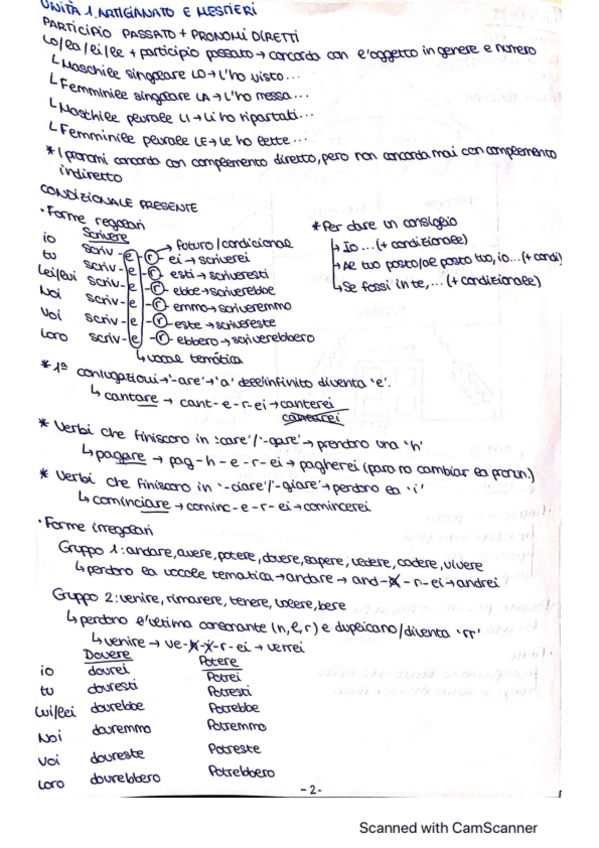 UNITÀ 1. ARTIGIANATO E MESTIERI
PARTICIPIO PASSATO + PRONOMI DIRETTI
Lo/la/li/le + participio passato → concorda con l'oggetto in genere e numero
↳ Maschile singolare LO → L'ho visto...
↳ Femminile singolare LA → L'ho messa...
↳ Maschile plurale LI → Li ho riportati...
↳ Femminile plurale LE → Le ho lette...
* I pronomi concorda con complemento diretto, pero non concorda mai con complemento
indiretto
CONDIZIONALE PRESENTE
· Forme regolari
Scrivere
→ futuro/condicional
io scriv-e-r-ei → scriverei
tu scriv-e-r-esti → scriveresti
Lei/lui scriv-e-r-ebbe → scriverebbe
Noi scriv-e-r-emmo → scriveremmo
Voi scriv-e-r-este → scrivereste
Loro scriv-e-r-ebbero → scriverebbero
↳ vocale temática
* Per dare un consiglio
↳ Io...(+ condizionale)
↳ Al tuo posto/al posto tuo, io...(+ condi)
↳ Se fossi in te,...(+ condizionale)
* 1ª coniugazioui → '-are' → 'a' dell'infinito diventa 'e'.
↳ cantare → cant-e-r-ei → canterei
cantarei
* Verbi che finiscoro in '-care'/'-gare' → prendono una 'h'
↳ pagare → pag-h-e-r-ei → pagherei (para no cambiar la pronun.)
* Verbi che finiscoro in '-ciare'/'-giare' → perdono la 'i'
↳ cominciare → cominc-e-r-ei → comincerei
· Forme irregolari
Gruppo 1: andare, avere, potere, dovere, sapere, vedere, cadere, vivere
↳ perdono la vocale tematica → andare → and-a-r-ei → andrei
Gruppo 2: venire, rimanere, tenere, volere, bere
↳ perdono l'ultima consonante (n, l, r) e duplicano/diventa 'rr'
↳ venire → ve-n-i-r-ei → verrei
Dovere Potere
io dovrei Potrei
tu dovresti Potresti
Lui/Lei dovrebbe Potrebbe
Noi dovremmo Potremmo
Voi dovreste Potreste
Loro dovrebbero Potrebbero
-2-
Scanned with CamScanner